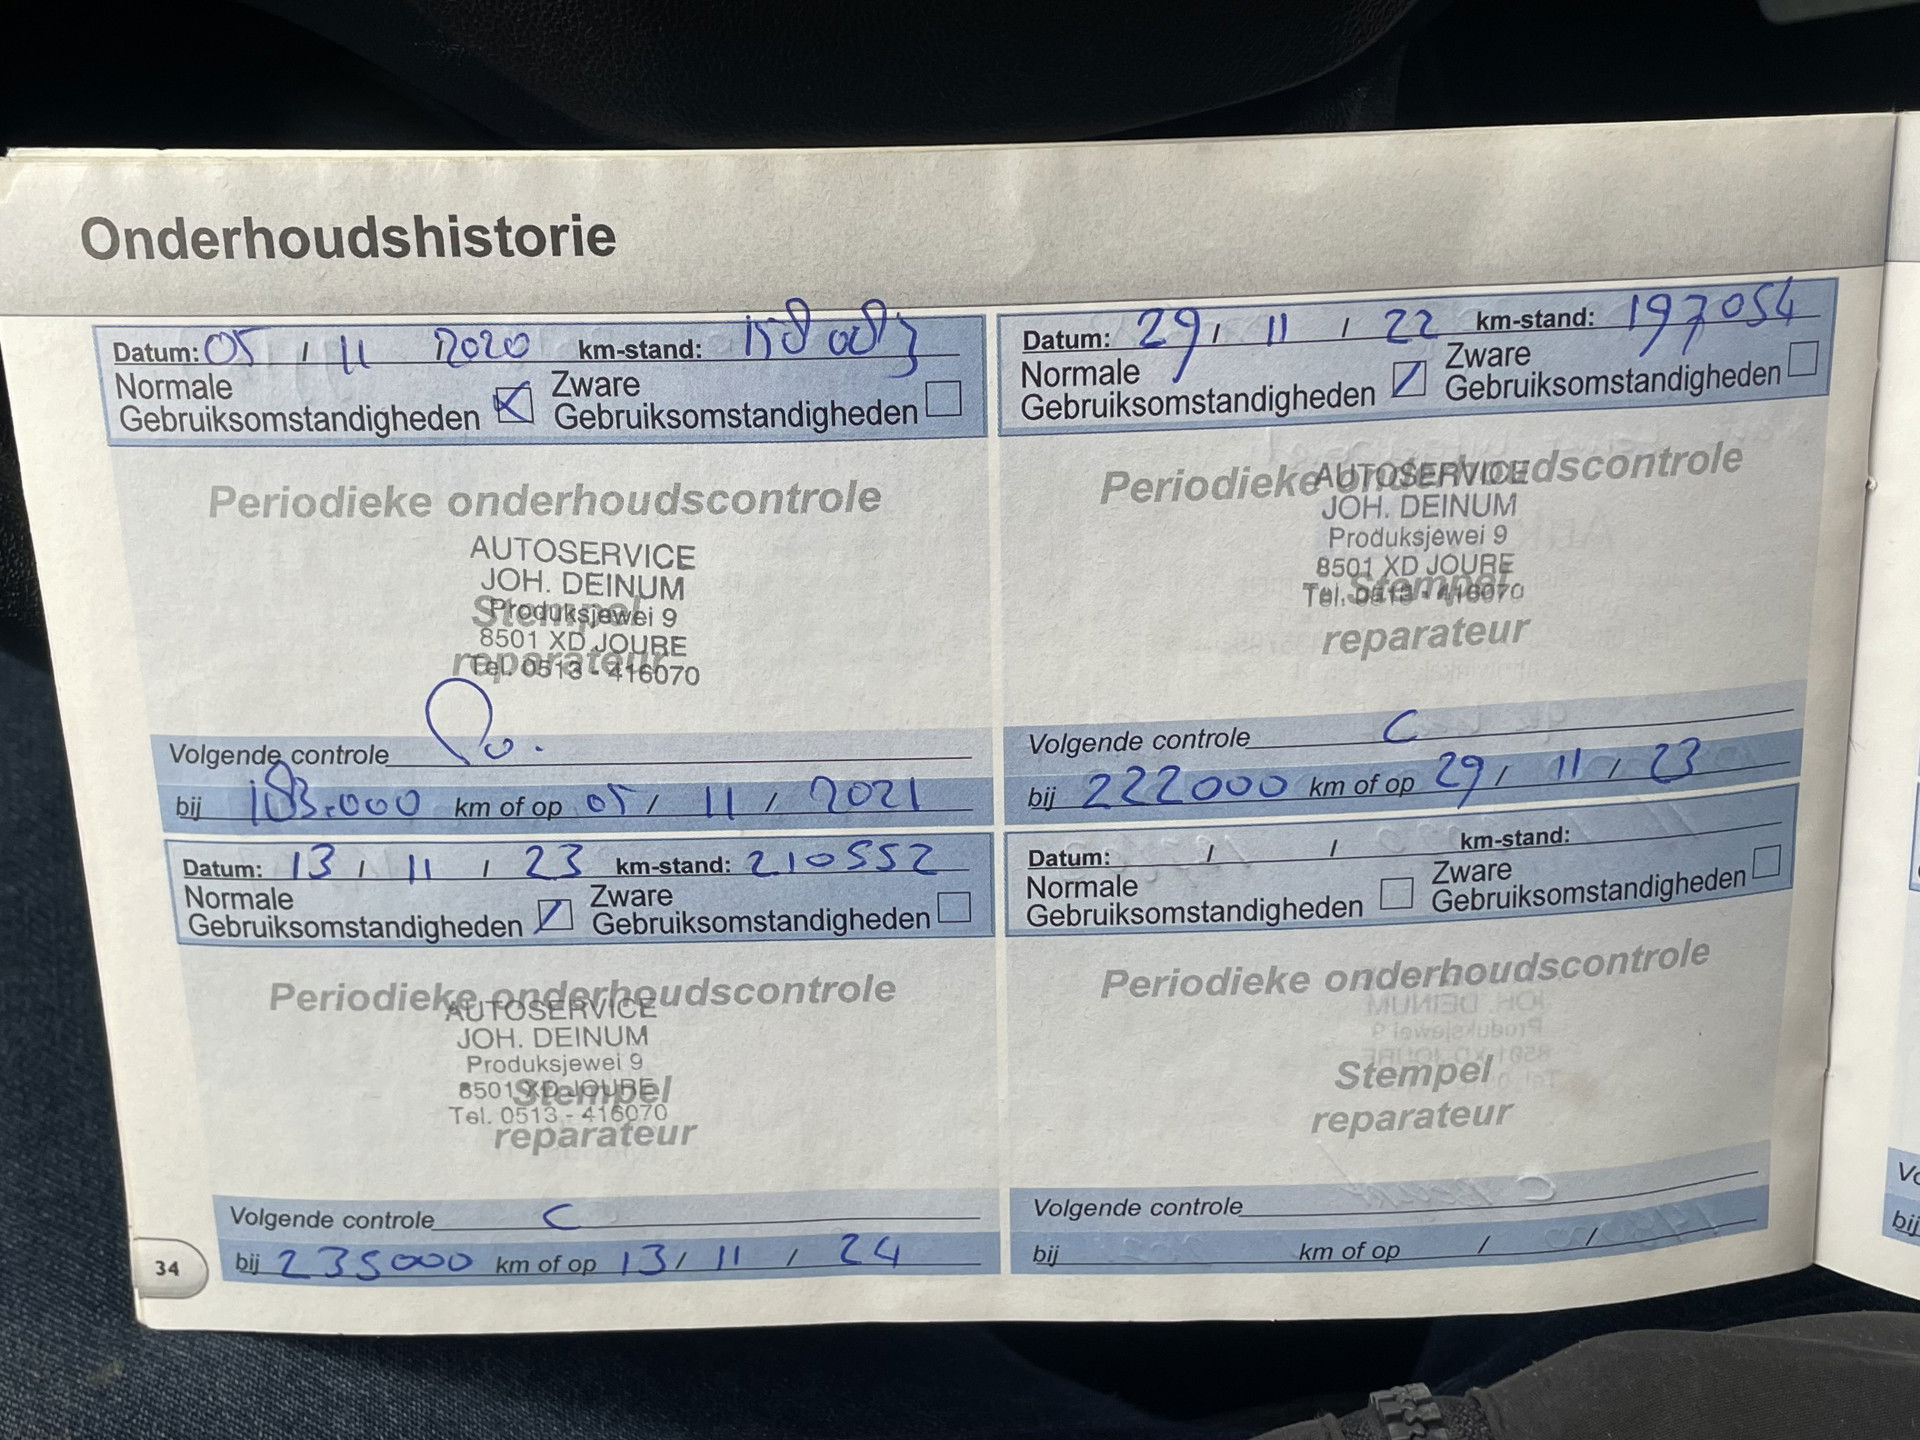 Onderhoudshistorie
Datum: 05 / 11 2020 km-stand: 158 083
Normale
Gebruiksomstandigheden
Zware
Gebruiksomstandigheden
Periodieke onderhoudscontrole
AUTOSERVICE
JOH. DEINUM
Produksjewei 9
8501 XD JOURE
Tel. 0513 - 416070
Stempel
reparateur
Volgende controle
bij 183.000 km of op 05 / 11 / 2021
Datum: 29 / 11 / 22 km-stand: 197054
Normale
Gebruiksomstandigheden
Zware
Gebruiksomstandigheden
Periodieke onderhoudscontrole
AUTOSERVICE
JOH. DEINUM
Produksjewei 9
8501 XD JOURE
Tel. 0513 - 416070
Stempel
reparateur
Volgende controle C
bij 222000 km of op 29 / 11 / 23
Datum: 13 / 11 / 23 km-stand: 210552
Normale
Gebruiksomstandigheden
Zware
Gebruiksomstandigheden
Periodieke onderhoudscontrole
AUTOSERVICE
JOH. DEINUM
Produksjewei 9
8501 XD JOURE
Tel. 0513 - 416070
Stempel
reparateur
Volgende controle C
bij 235000 km of op 13 / 11 / 24
Datum: / / km-stand:
Normale
Gebruiksomstandigheden
Zware
Gebruiksomstandigheden
Periodieke onderhoudscontrole
Stempel
reparateur
Volgende controle
bij km of op / /
34
bij